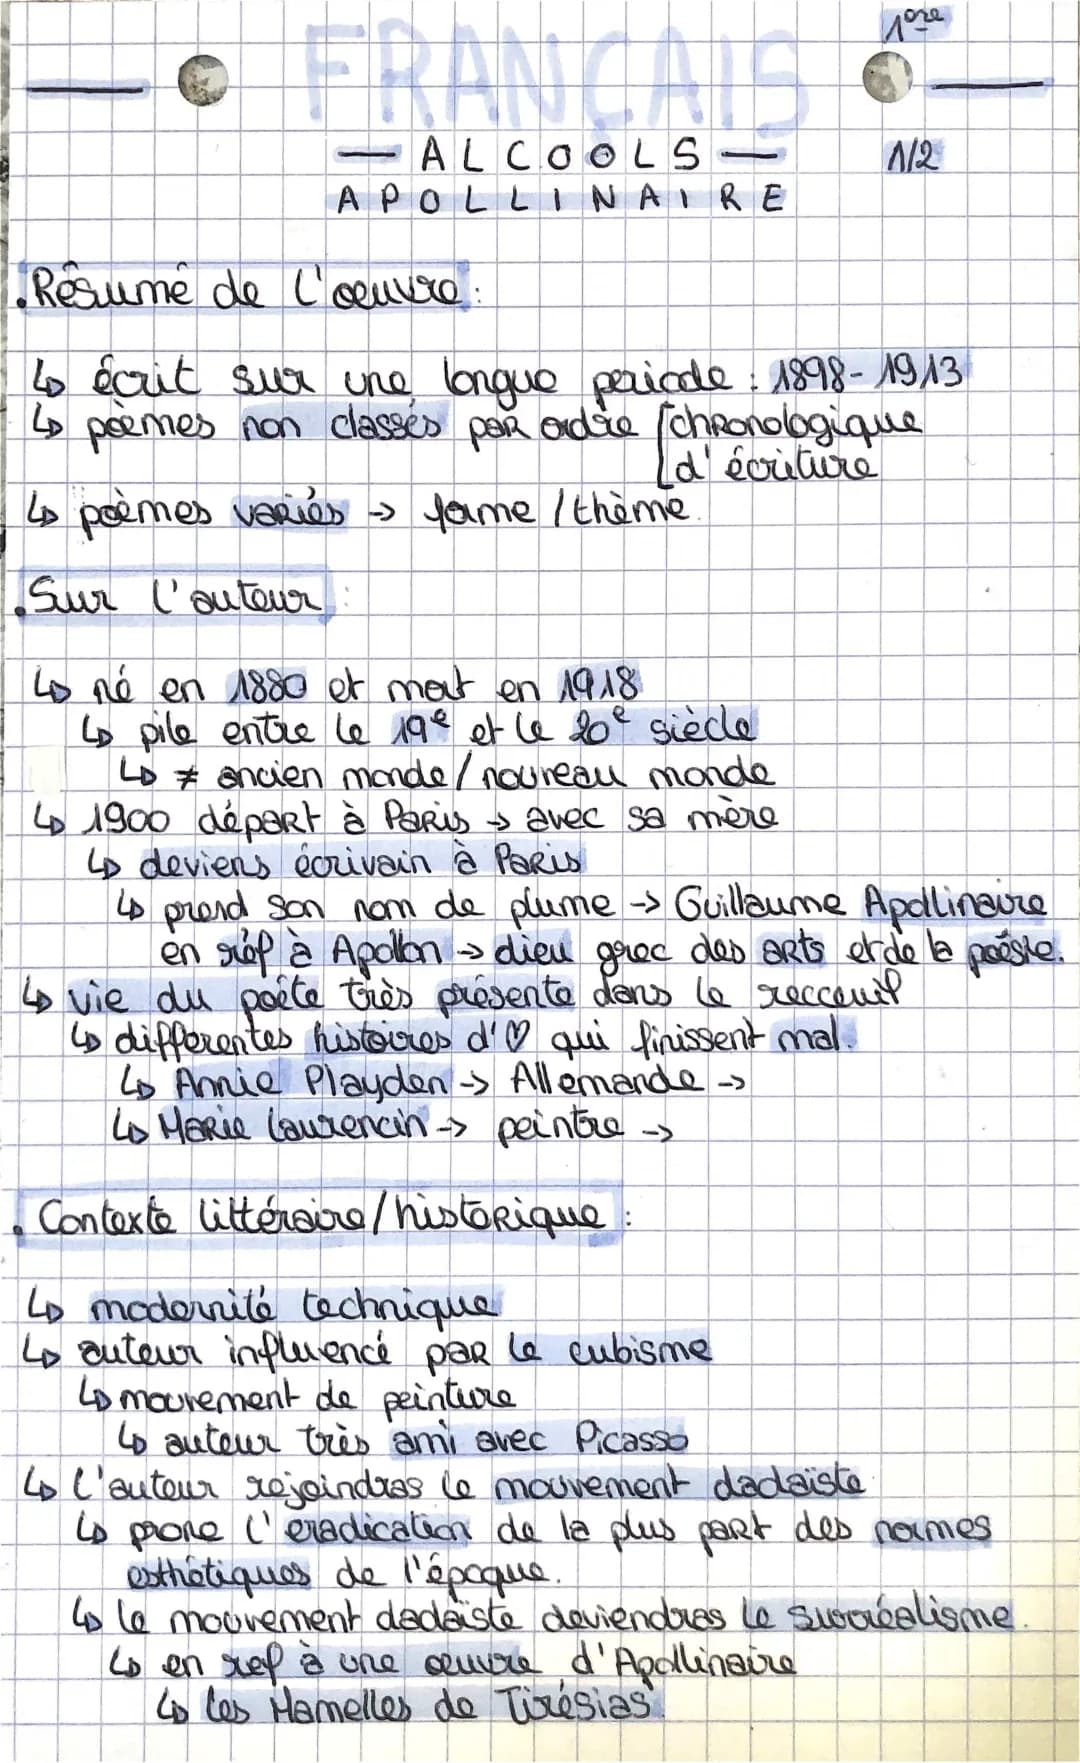 1ère
FRANÇAIS
— ALCOOLS —
1/2
APOLLINAIRE
.Résumé de l'oeuvre :
↳ écrit sur une longue periode : 1898-1913
↳ poèmes non classés par ordre [chronologique
[d'écriture
↳ poèmes variés → forme / thème.
.Sur l'auteur :
↳ né en 1880 et mort en 1918
↳ pile entre le 19e et le 20e siècle
↳ ≠ ancien monde / nouveau monde
↳ 1900 départ à Paris → avec sa mère
↳ deviens écrivain à Paris
↳ prend son nom de plume → Guillaume Apollinaire
en réf à Apollon → dieu grec des arts et de la poésie.
↳ vie du poète très présente dans le recceuil
↳ differentes histoires d'♡ qui finissent mal.
↳ Annie Playden → Allemande →
↳ Marie Laurencin → peintre →
. Contexte littéraire/historique :
↳ modernité technique
↳ auteur influencé par le cubisme
↳ mouvement de peinture
↳ auteur très ami avec Picasso
↳ l'auteur rejoindras le mouvement dadaïste
↳ prone l'eradication de la plus part des normes
esthétiques de l'époque.
↳ le mouvement dadaïste deviendras le surréalisme.
↳ en ref à une œuvre d'Apollinaire
↳ les Mamelles de Tirésias.